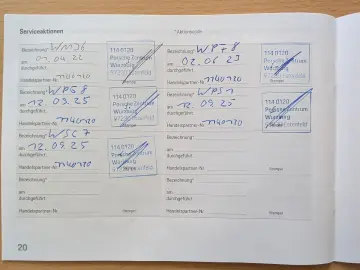 Serviceaktionen
* Aktionscode
Bezeichnung* WMJ6
am 07.04.22
durchgeführt
Handelspartner-Nr. 1140120
114 0120
Porsche Zentrum
Würzburg
Stempel
Bezeichnung* WPF8
am 02.06.23
durchgeführt
Handelspartner-Nr. 1140120
114 0120
Porsche Zentrum
Würzburg
Stempel
Bezeichnung*
am 12.09.25
durchgeführt
Handelspartner-Nr. 1140120
114 0120
Porsche Zentrum
Würzburg
Stempel
Bezeichnung*
am 12.09.25
durchgeführt
Handelspartner-Nr. 1140120
114 0120
Würzburg
Stempel
Bezeichnung*
am 12.09.25
durchgeführt
Handelspartner-Nr. 1140120
114 0120
Würzburg
Stempel
Bezeichnung*
am
durchgeführt
Handelspartner-Nr.
Stempel
Bezeichnung*
am
durchgeführt
Handelspartner-Nr.
Stempel
Bezeichnung*
am
durchgeführt
Handelspartner-Nr.
Stempel
20